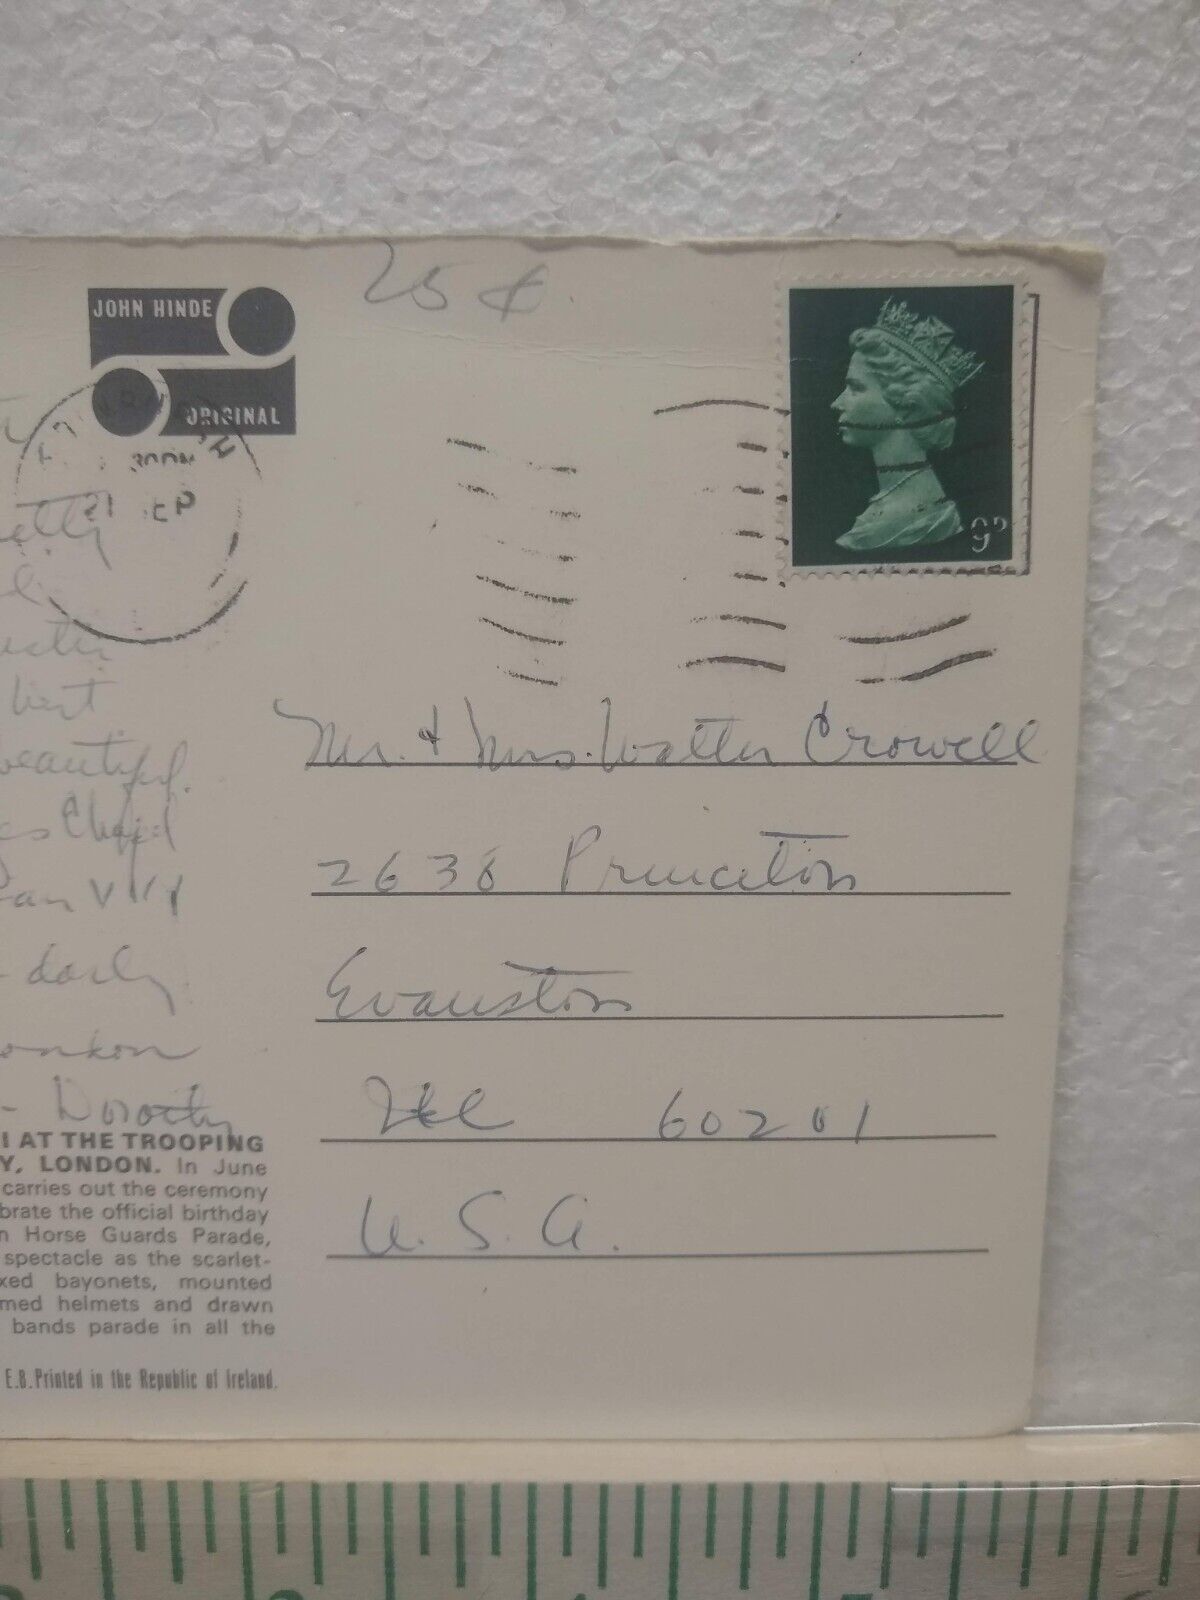 25¢
JOHN HINDE
ORIGINAL
21 SEP
9D
best
beautiful.
daily
Dorothy
Mr. & Mrs. Walter Crowell
2638 Princeton
Evanston
Ill 60201
U.S.A.
I AT THE TROOPING
Y, LONDON. In June
carries out the ceremony
brate the official birthday
n Horse Guards Parade,
spectacle as the scarlet-
xed bayonets, mounted
med helmets and drawn
bands parade in all the
E.B. Printed in the Republic of Ireland.
3 4 5 6